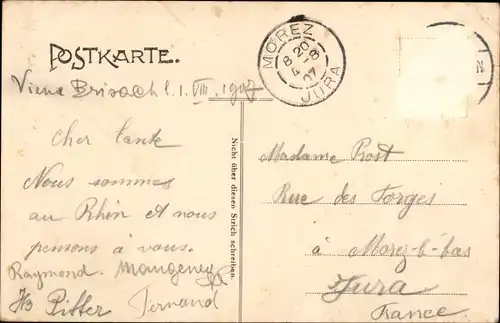 POSTKARTE.
MOREZ
8 20
4 -8
07
JURA
Vieux Brisach l. 1. VIII. 1907
Cher tante
Nous sommes
au Rhin et nous
pensons à vous.
Raymond. Mangeney
Ritter Fernand
Nicht über diesen Strich schreiben.
Madame Prost
Rue des Forges
à Morez-l-bas
Jura
France